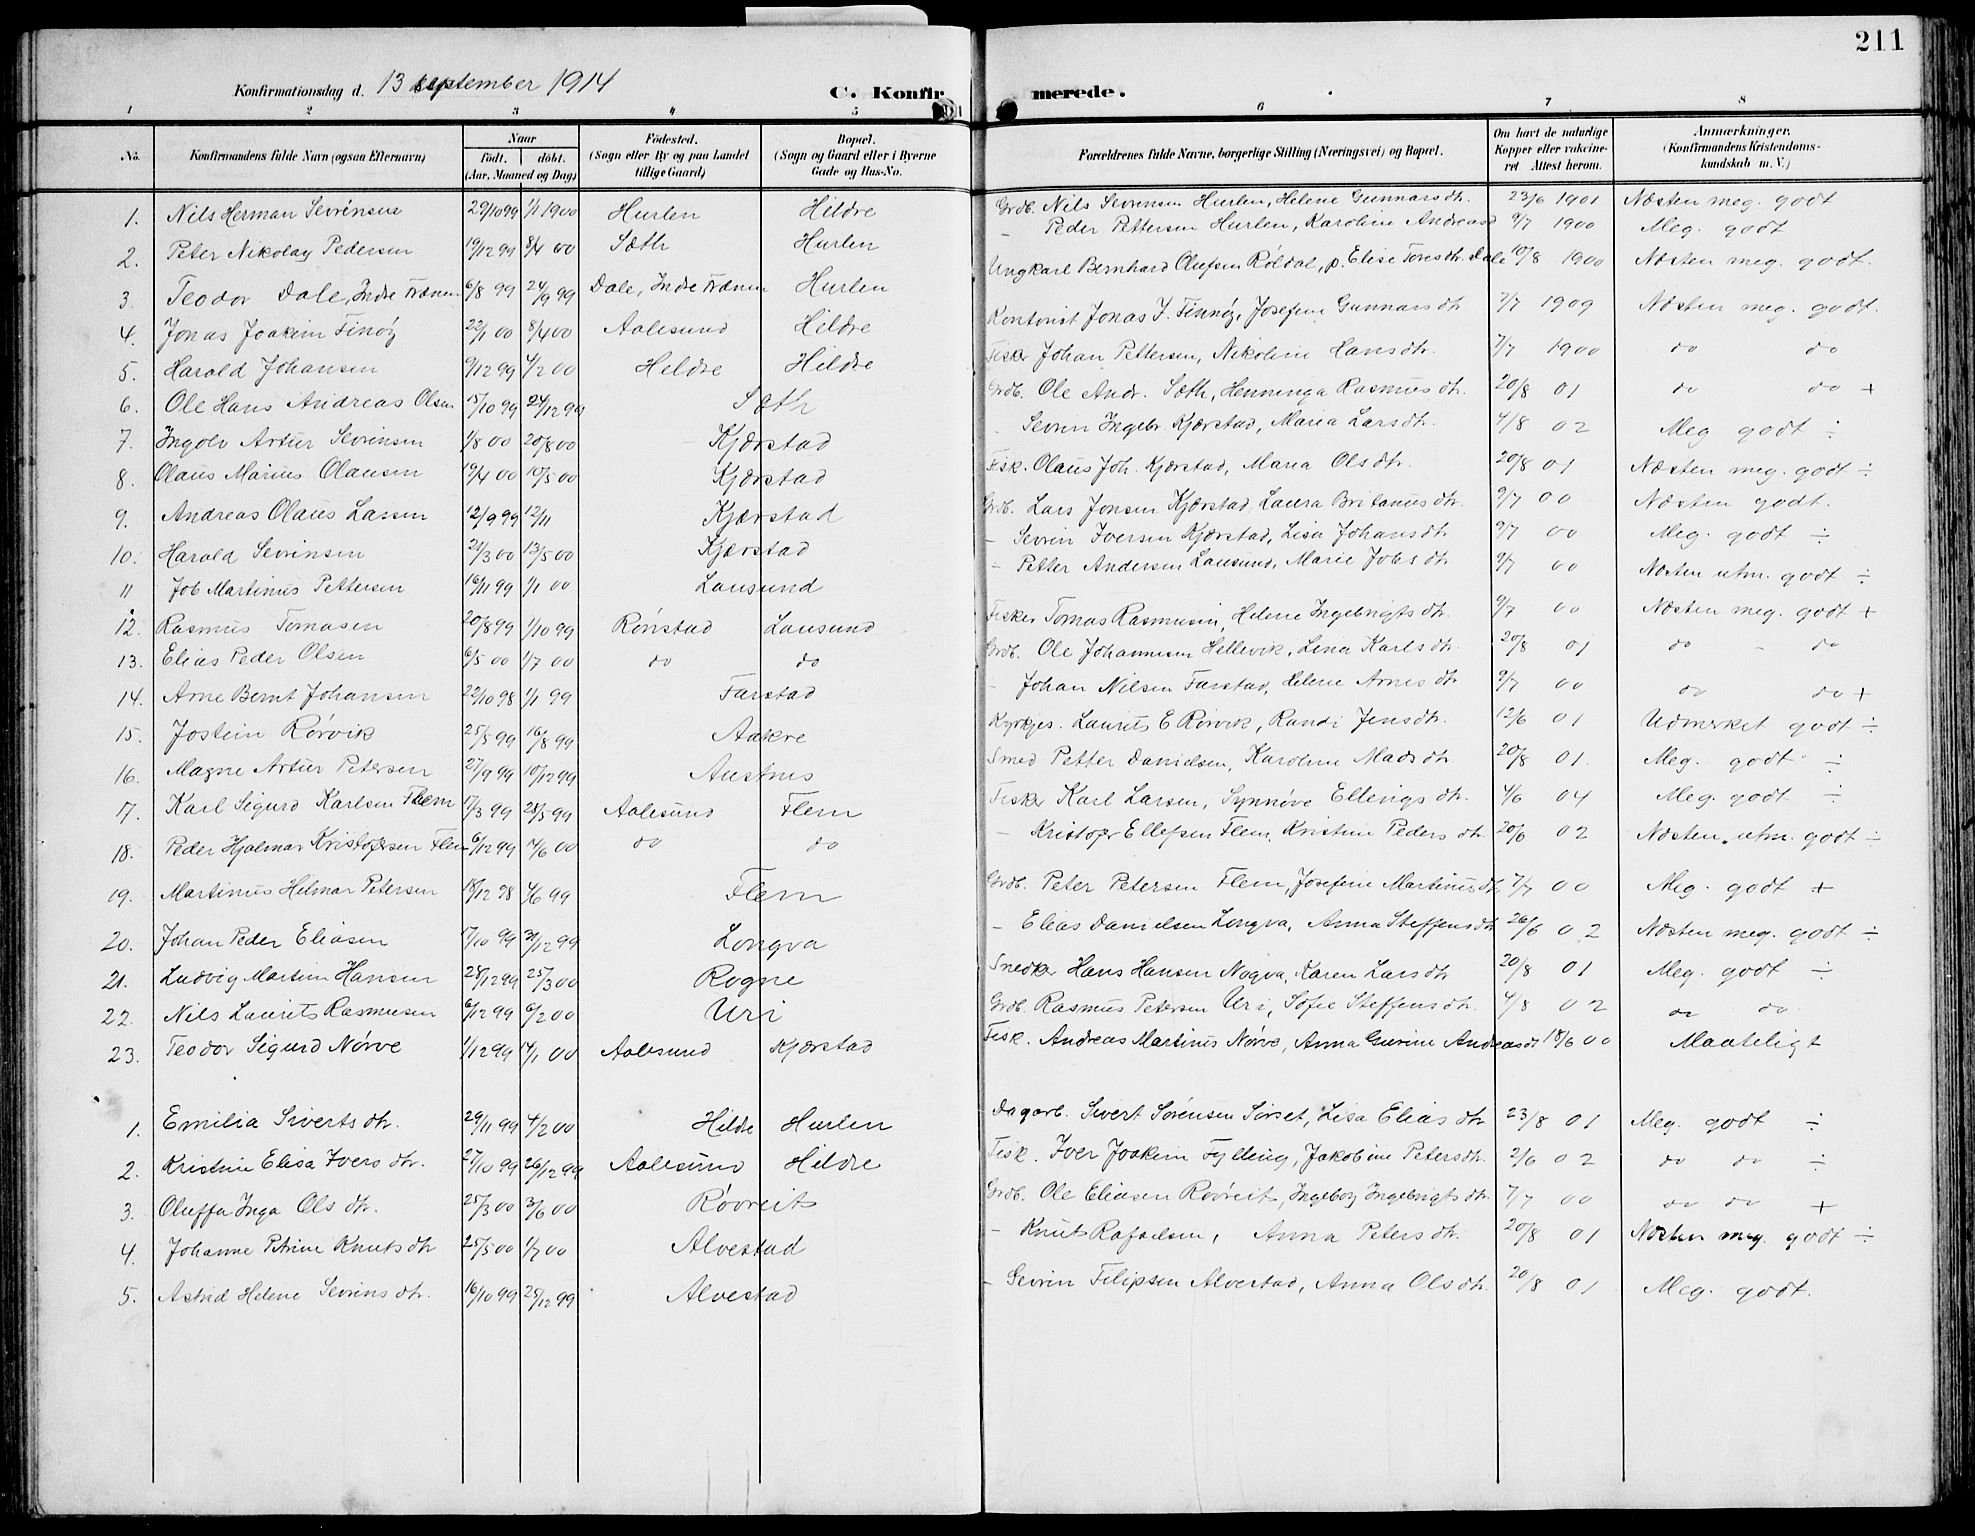 211
Konfirmationsdag d. 13 september 1914 C. Konfirmerede.
1 2 3 4 5 6 7 8
No. Konfirmandens fulde Navn (ogsaa Efternavn) Naar født. døbt. (Aar, Maaned og Dag) Fødested. (Sogn eller By og paa Landet tillige Gaard) Bopæl. (Sogn og Gaard eller i Byerne Gade og Hus-No. Forældrenes fulde Navne, borgerlige Stilling (Næringsvei) og Bopæl. Om havt de naturlige Kopper eller vakcineret Attest herom. Anmærkninger. (Konfirmandens Kristendomskundskab m. V.)
1. Nils Herman Sevrinsen 29/10 99 1/1 1900 Hurlen Hildre Grdb. Nils Sevrinsen Hurlen, Helene Gunnarsdtr. 23/6 1901 Næsten meg. godt
2. Peter Nikolay Pedersen 19/12 99 8/4 00 Sæth Hurlen - Peder Pettersen Hurlen, Karoline Andreasd 9/7 1900 Meg. godt
3. Teodor Dale, Indre Frænen 6/8 99 24/9 99 Dale, Indre Frænen Hurlen Ungkarl Bernhard Olufsen Røldal, p. Elise Toresdtr. Dale 10/8 1900 Næsten meg. godt.
4. Jonas Joakim Finøy 22/1 00 8/4 00 Aalesund Hildre Kontorist Jonas J. Finnøy, Josefine Gunnarsdtr 7/7 1909 Næsten meg. godt.
5. Harald Johansen 9/12 99 4/2 00 Hildre Hildre Fisker Johan Pettersen, Nikoline Hansdtr. 7/7 1900 do do
6. Ole Hans Andreas Olsen 15/10 99 24/12 99 Sæth Grdb. Ole Andr. Sæth, Henninga Rasmusdtr. 20/8 01 do do +
7. Ingolv Artur Sevrinsen 1/8 00 20/8 00 Kjærstad - Sevrin Ingebr. Kjærstad, Maria Larsdtr. 4/8 02 Meg godt ÷
8. Olaus Marius Olausen 19/4 00 10/5 00 Kjærstad Fisk. Olaus Joh. Kjærstad, Maria Olsdtr. 20/8 01 Næsten meg. godt ÷
9. Andreas Olaus Larsen 12/9 99 12/11 Kjærstad Grdb. Lars Jonsen Kjærstad, Laura Britanusdtr. 9/7 00 Næsten godt.
10. Harald Sevrinsen 21/3 00 13/5 00 Kjærstad - Sevrin Iversen Kjærstad, Lisa Johansdtr. 9/7 00 Meg. godt ÷
11 Job Martinus Pettersen 16/11 99 1/1 00 Lausund - Petter Andersen Lausund, Marie Jobsdtr 9/7 00 Næsten utm. godt ÷
12. Rasmus Tomasen 20/8 99 1/10 99 Rønstad Lausund Fisker Tomas Rasmusen, Helene Ingebrigtsdtr. 9/7 00 Næsten meg. godt +
13. Elias Peder Olsen 6/5 00 1/7 00 do do Grdb. Ole Johannesen Hellevik, Lina Karlsdtr. 20/8 01 do - do
14. Arne Bernt Johansen 22/10 98 1/1 99 Farstad - Johan Nilsen Farstad, Helene Arnesdtr 9/7 00 do do +
15. Jostein Rørvik 25/5 99 16/8 99 Aakre Kyrkjes. Laurits E Rørvik, Randi Jensdtr. 12/6 01 Udmerket godt ÷
16. Magne Artur Petersen 27/9 99 10/12 99 Austnes Smed Petter Danielsen, Karoline Madsdtr. 20/8 01. Meg. godt ÷
17. Karl Sigurd Karlsen Flem 17/3 99 28/5 99 Aalesund Flem Fisker Karl Larsen, Synnøve Ellingsdtr. 4/6 04 Meg. godt ÷
18. Peder Hjalmar Kristofersen Flem 6/12 99 4/6 00 do do - Kristofer Ellefsen Flem, Kristine Pedersdtr. 20/6 02 Næsten utm. godt ÷
19. Martinus Hilmar Petersen 18/12 98 4/6 99 Flem Grdb. Peter Petersen Flem, Josefine Martinusdtr. 7/7 00 Meg. godt +
20. Johan Peder Eliasen 17/10 99 31/12 99 Longva - Elias Danielsen Longva, Anna Steffensdtr 26/6 02 Næsten meg. godt ÷
21. Ludvig Martin Hansen 28/12 99 25/3 00 Rogne Snedker Hans Hansen Nogva, Karen Larsdtr 20/8 01 Meg. godt ÷
22. Nils Laurits Rasmusen 6/12 99 6/2 00 Uri Grdb. Rasmus Petersen Uri, Sofie Steffensdtr. 4/8 02 do do
23. Teodor Sigurd Nørve 1/12 99 14/1 00 Aalesund Kjærstad Fisk. Andreas Martinus Nørve, Anna Gurine Andreasdt 18/6 00 Maateligt
1. Emilia Sivertsdtr. 29/11 99 4/2 00 Hildre Hurlen Dagarb. Sivert Sørensen Sørset, Lisa Eliasdtr 23/8 01 Meg. godt ÷
2. Kristine Elisa Iversdtr. 27/10 99 26/12 99 Aalesund Hildre Fisk. Iver Joakim Fylling, Jakobine Petersdtr. 2/6 02 do do ÷
3. Oluffa Inga Olsdtr. 25/3 00 3/6 00 Røvreit Grdb. Ole Eliasen Røvreit, Ingeborg Ingebrigtsdtr. 7/7 00 do do +
4. Johanne Petrine Knutsdtr 25/5 00 1/7 00 Alvestad - Knut Rafaelsen, Anna Petersdtr. 20/8 01 Næsten meg. godt ÷
5. Astrid Helene Sevrinsdtr. 16/10 99 25/12 99 Alvestad - Sevrin Filipsen Alvestad, Anna Olsdtr. 20/8 01 Meg. godt.